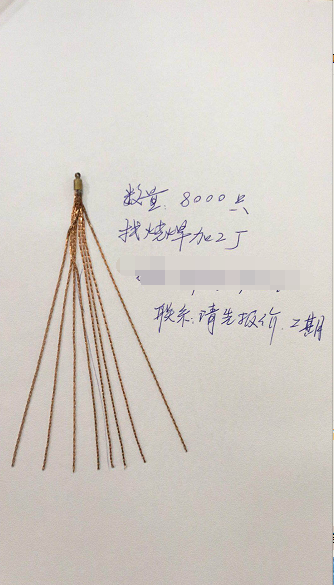 数量: 8000只
找烧焊加工厂
联系: 请先报价. 工期